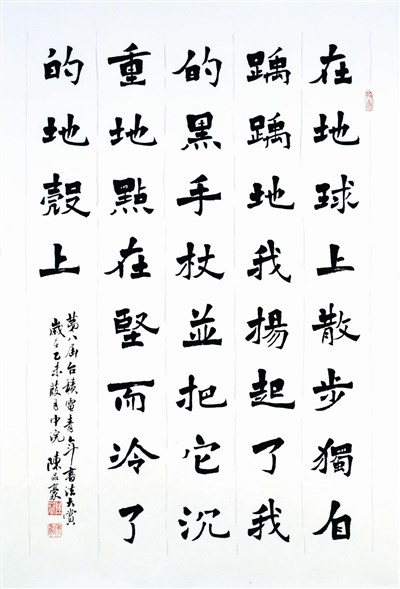 在地球上散步獨自
踽踽地我揚起了我
的黑手杖並把它沉
重地點在堅而冷了
的地殼上
第八屆台積電青年書法大賞
歲在乙未葭月中浣 陳